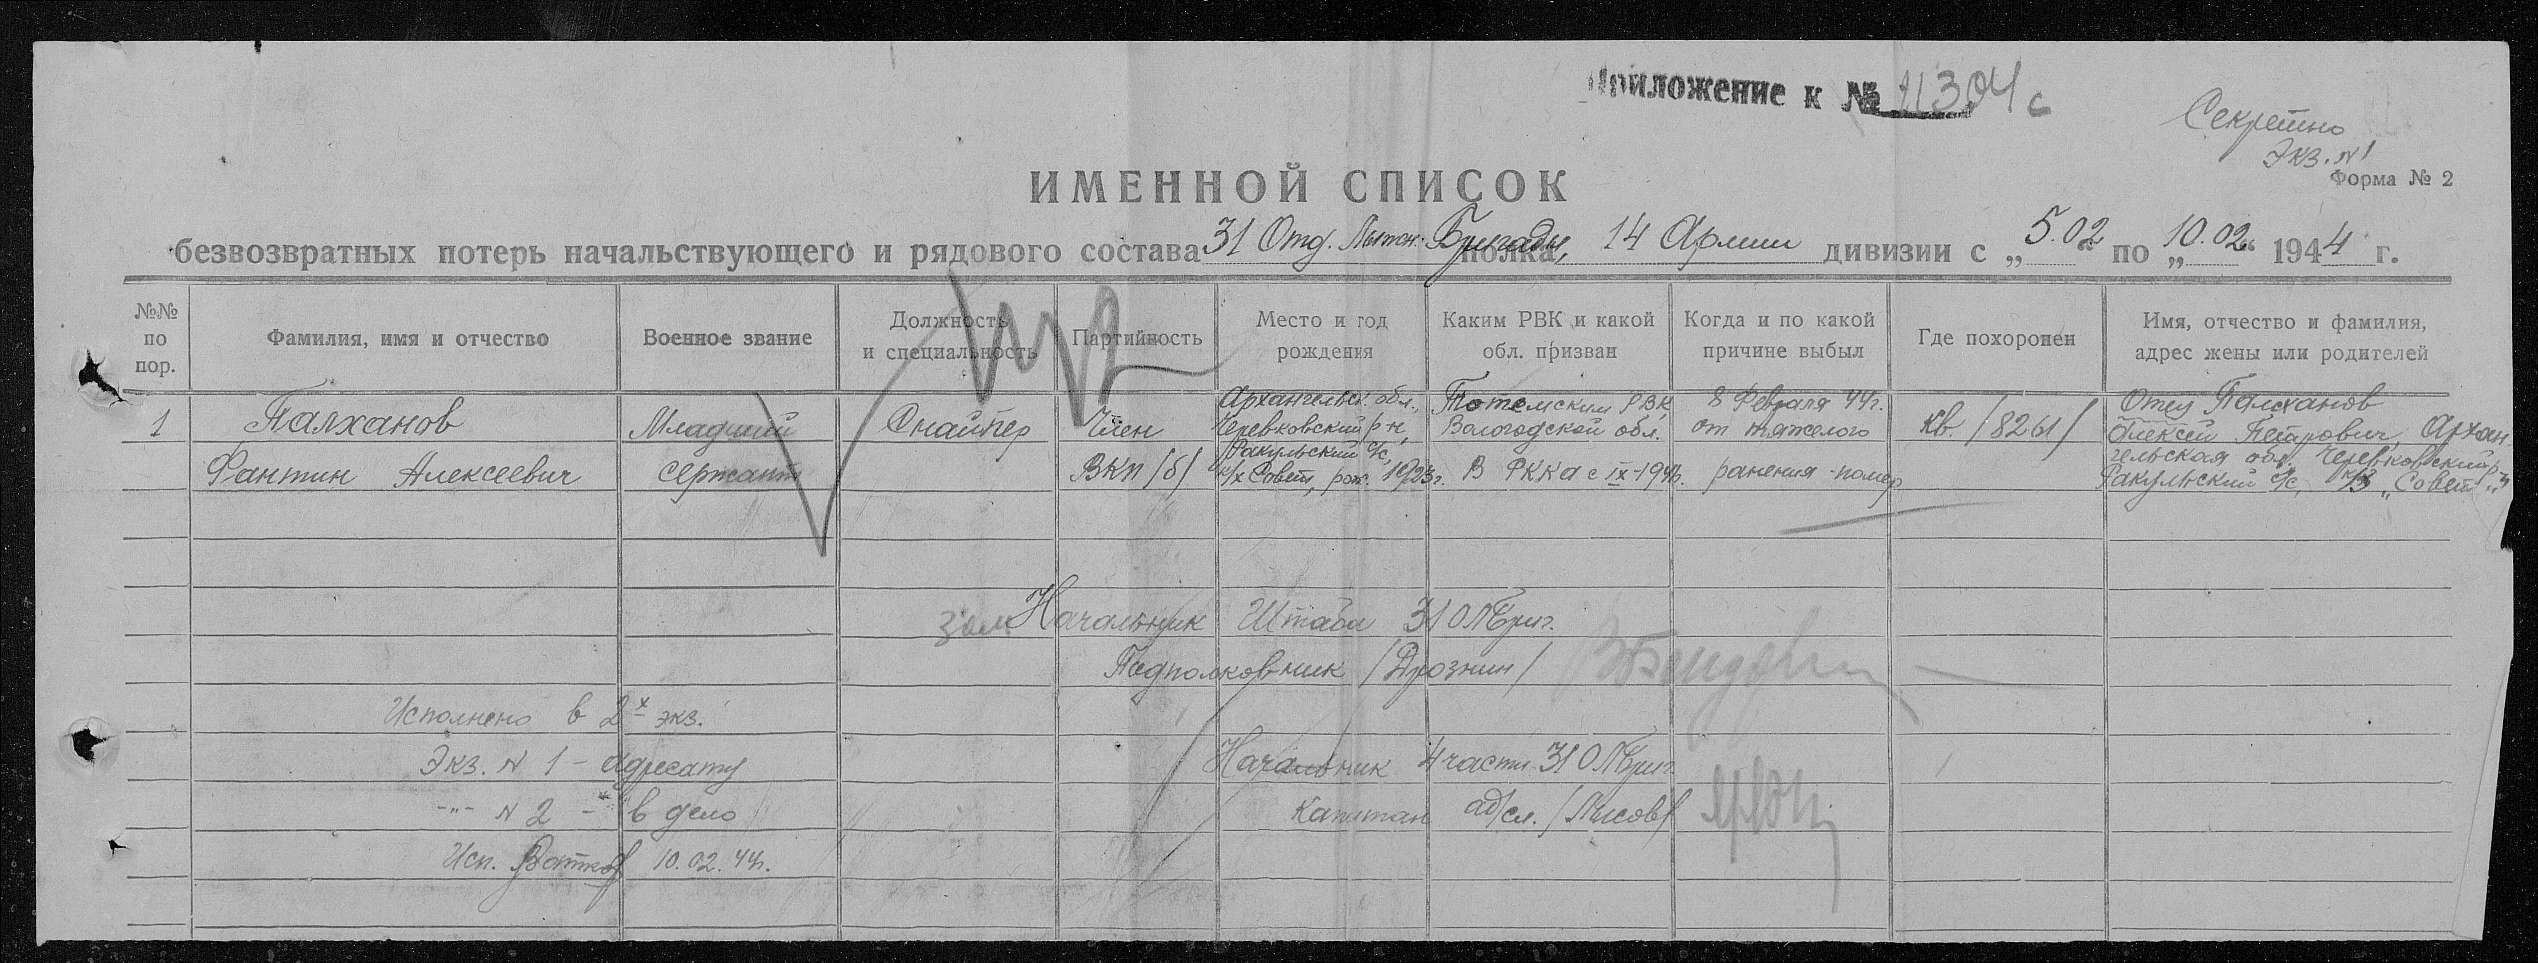 Приложение к № 11304с
Секретно
Экз. N 1
Форма № 2
ИМЕННОЙ СПИСОК
безвозвратных потерь начальствующего и рядового состава 31 Отд. Лыжн. Бригады, полка 14 Армии дивизии с „5.02“ по „10.02“ 1944 г.
№№ по пор.
Фамилия, имя и отчество
Военное звание
Должность и специальность
Партийность
Место и год рождения
Каким РВК и какой обл. призван
Когда и по какой причине выбыл
Где похоронен
Имя, отчество и фамилия, адрес жены или родителей
1
Палханов
Фантин Алексеевич
Младший
сержант
Снайпер
Член
ВКП/б/
Архангельск. обл.,
Черевковский р-н,
Ракульский с/с,
к/х Совет, рож. 1923г.
Тотемским РВК
Вологодской обл.
В РККА с IX-1941г.
8 февраля 44г.
от тяжелого
ранения - помер
кв. /8261/
Отец Палханов
Алексей Петрович, Архан
гельская обл. Черевковский р-н
Ракульский с/с, к/з „Совет“
зам Начальник Штаба 31 ОЛБриг.
Подполковник /Дрознин/
Исполнено в 2х экз.
Экз. N 1 - адресату
-"- N 2 - в дело
Начальник 4 части 31 ОЛБриг.
Капитан ад/сл. /Лисов/
Исп. 10.02.44г.